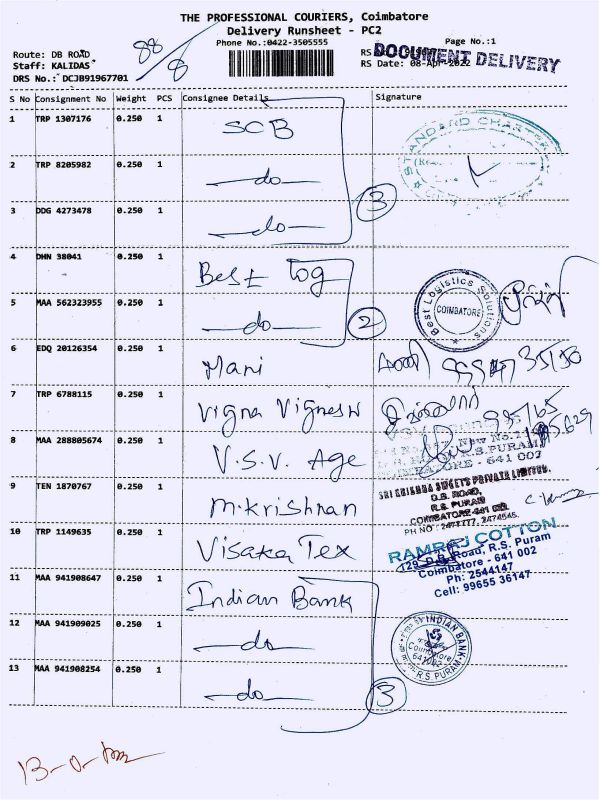 THE PROFESSIONAL COURIERS, Coimbatore
Delivery Runsheet - PC2
Phone No.:0422-3505555
Page No.:1
Route: DB ROAD
Staff: KALIDAS
DRS No.: DCJB91967701
88/8
RS
DOCUMENT DELIVERY
RS Date: 08-Apr-2022
S No Consignment No Weight PCS Consignee Details Signature
1 TRP 1307176 0.250 1 SCB
STANDARD CHARTER
2 TRP 8205982 0.250 1 do
3 DDG 4273478 0.250 1 do
3
4 DHN 38041 0.250 1 Best log
Best Logistics Solutions
COIMBATORE
5 MAA 562323955 0.250 1 do
2
6 EDQ 20126354 0.250 1 Mani
மணி
7 TRP 6788115 0.250 1 Vigna Vignesh
8 MAA 288805674 0.250 1 V.S.V. Age
R.S.PURAM,
COIMBATORE - 641 002
9 TEN 1870767 0.250 1 M.krishnan
SRI KRISHNA SWEETS PRIVATE LIMITED.
D.B. ROAD,
R.S. PURAM
COIMBATORE-641 002.
PH NO : 2477777, 2474545.
10 TRP 1149635 0.250 1 Visaka Tex
RAMRAJ COTTON
129, D.B. Road, R.S. Puram
Coimbatore - 641 002
Ph: 2544147
Cell: 99655 36147
11 MAA 941908647 0.250 1 Indian Bank
12 MAA 941909025 0.250 1 do
INDIAN BANK
Coimbatore
641002
R.S. PURAM
13 MAA 941908254 0.250 1 do
3